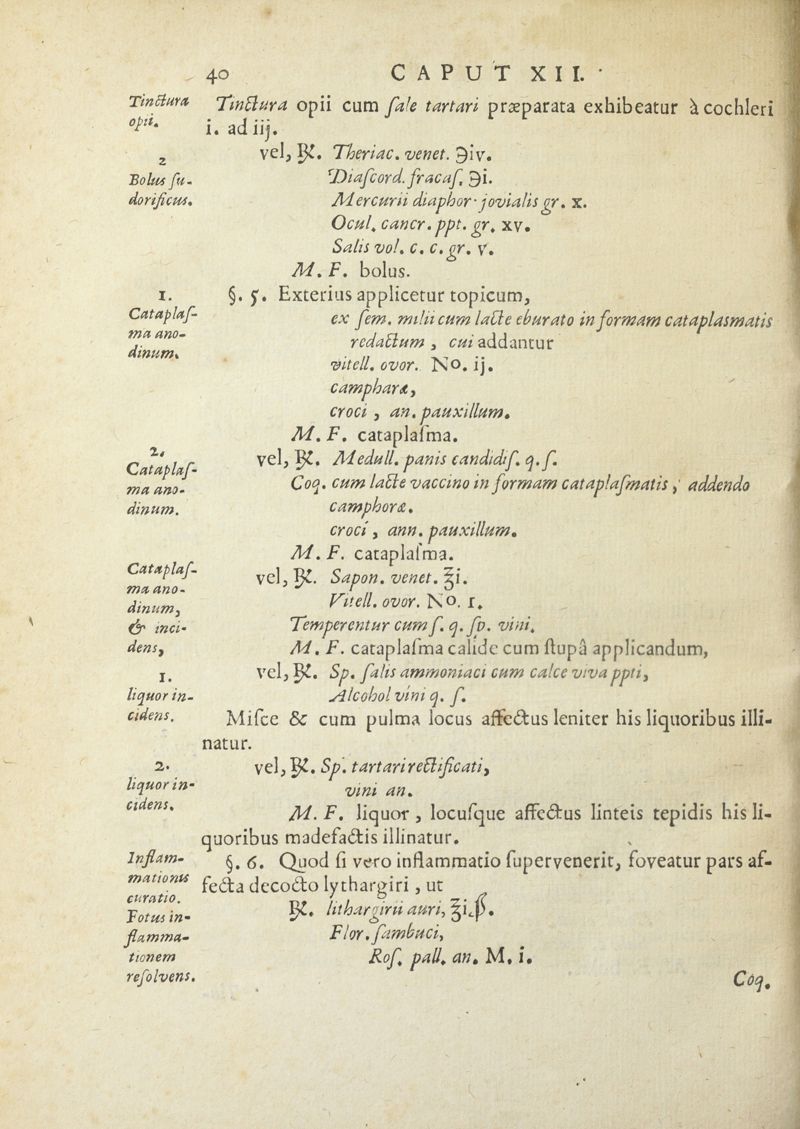 40 CAPUT XII.
Tinctura
opii.
Tinctura opii cum ſale tartari præparata exhibeatur à cochleri
i. ad iij.
2
Bolus ſu-
dorificus.
vel, ℞. Theriac. venet. ℈iv.
Diaſcord. fracaſ. ℈i.
Mercurii diaphor. jovialis gr. x.
Ocul. cancr. ppt. gr. xv.
Salis vol. c. c. gr. v.
M. F. bolus.
1.
Cataplaſ-
ma ano-
dinum.
§. 5. Exterius applicetur topicum,
ex ſem. milii cum lacte eburato in formam cataplasmatis
redactum, cui addantur
vitell. ovor. No. ij.
camphoræ,
croci, an. pauxillum.
M. F. cataplaſma.
2.
Cataplaſ-
ma ano-
dinum.
vel, ℞. Medull. panis candidiſ. q. ſ.
Coq. cum lacte vaccino in formam cataplaſmatis, addendo
camphoræ.
croci, ann. pauxillum.
M. F. cataplaſma.
Cataplaſ-
ma ano-
dinum,
& inci-
dens,
vel, ℞. Sapon. venet. ℥i.
Vitell. ovor. No. 1.
Temperentur cum ſ. q. ſp. vini.
M. F. cataplaſma calide cum ſtupâ applicandum,
1.
liquor in-
cidens.
vel, ℞. Sp. ſalis ammoniaci cum calce viva ppti,
Alcohol vini q. ſ.
Miſce & cum pulma locus affectus leniter his liquoribus illi-
natur.
2.
liquor in-
cidens.
vel, ℞. Sp. tartari rectificati,
vini an.
M. F. liquor, locuſque affectus linteis tepidis his li-
quoribus madefactis illinatur.
Inflam-
mationis
curatio.
Fotus in-
flamma-
tionem
reſolvens.
§. 6. Quod ſi vero inflammatio ſupervenerit, foveatur pars af-
fecta decocto lythargiri, ut
℞. lithargirii auri, ℥i.ß.
Flor. ſambuci,
Roſ. pall. an. M. i.
Coq.